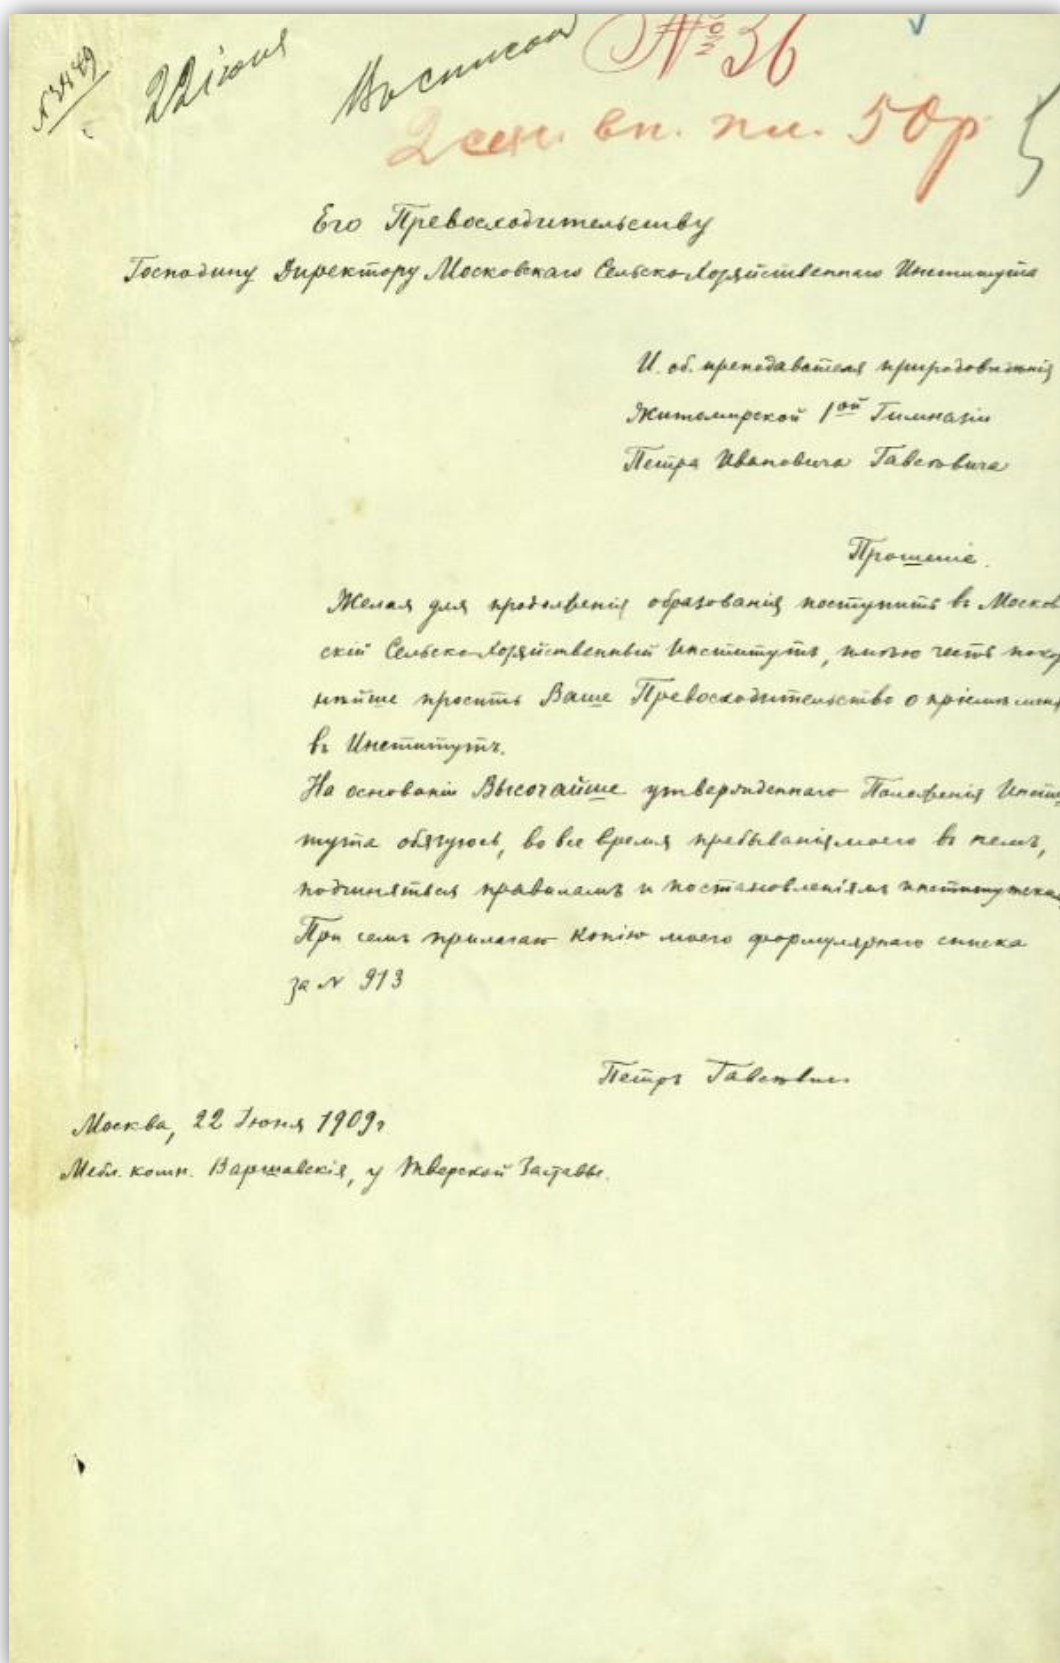 22 іюня
№ 36
вп. пл. 50р
Его Превосходительству
Господину Директору Московскаго Сельско-Хозяйственнаго Института
И. об. преподавателя природовѣдѣнія
Житомирской 1ой Гимназіи
Петра Ивановича Гавсевича
Прошеніе.
Желая для продолженія образованія поступить въ Москов
скій Сельско-Хозяйственный Институтъ, имѣю честь покор
нѣйше просить Ваше Превосходительство о пріемѣ меня
въ Институтъ.
На основаніи Высочайше утвержденнаго Положенія Инсти
тута обязуюсь, во все время пребыванія моего въ немъ,
подчиняться правиламъ и постановленіямъ
При семъ прилагаю копію моего формулярнаго списка
за N 913
Петръ Гавсевич
Москва, 22 Іюня 1909г
Мебл. комн. Варшавскія, у Тверской Заставы.